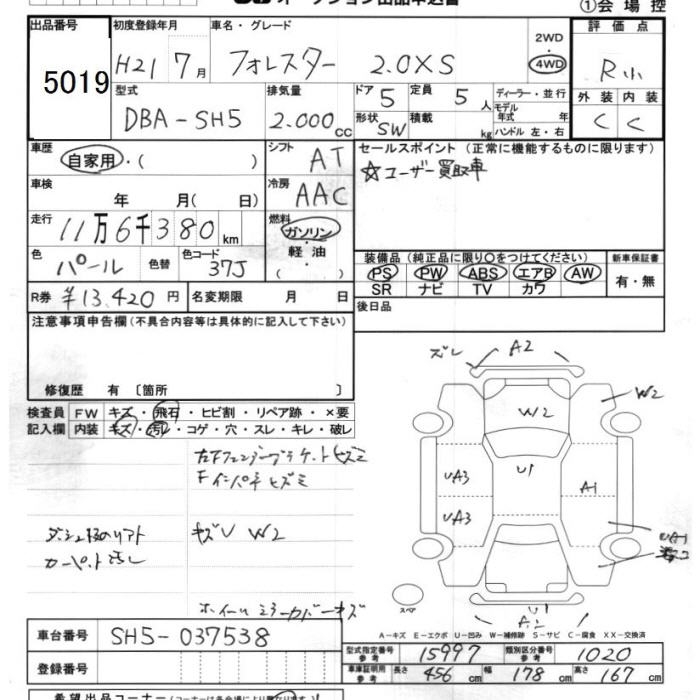 オークション出品申込書
①会場控
出品番号 初度登録年月 車名・グレード 評価点
5019 H21 7月 フォレスター 2.0XS 2WD 4WD R小
型式 排気量 ドア 5 定員 5人 ディーラー・並行 外装 内装
DBA-SH5 2.000cc 形状 SW 積載 kg モデル年式 年 ハンドル 左・右 C C
車歴 自家用・( ) シフト AT セールスポイント (正常に機能するものに限ります)
☆ユーザー買取車
車検 年 月( 日) 冷房 AAC
走行 11万6千380km 燃料 ガソリン・軽油・( )
色 パール 色替 色コード 37J
装備品 (純正品に限り○をつけてください) 新車保証書
PS PW ABS エアB AW 有・無
SR ナビ TV カワ
R券 ¥13,420円 名変期限 月 日 後日品
注意事項申告欄(不具合内容等は具体的に記入して下さい)
修復歴 有 〔箇所 〕
検査員記入欄 FW キズ・飛石・ヒビ割・リペア跡・×要
内装 キズ・汚レ・コゲ・穴・スレ・キレ・破レ
ズレ A2
W2
W2
U1
UA3
A1
UA3
UA1
キズU W2
カーペット汚レ
ホイールミラーカバーキズ
スペア
U1
A2
A-キズ E-エクボ U-凹み W-補修跡 S-サビ C-腐食 XX-交換済
車台番号 SH5-037538
型式指定番号 参考 15997 類別区分番号 参考 1020
登録番号 車庫証明用 参考 長さ 456cm 幅 178cm 高さ 167cm
希望出品コーナー